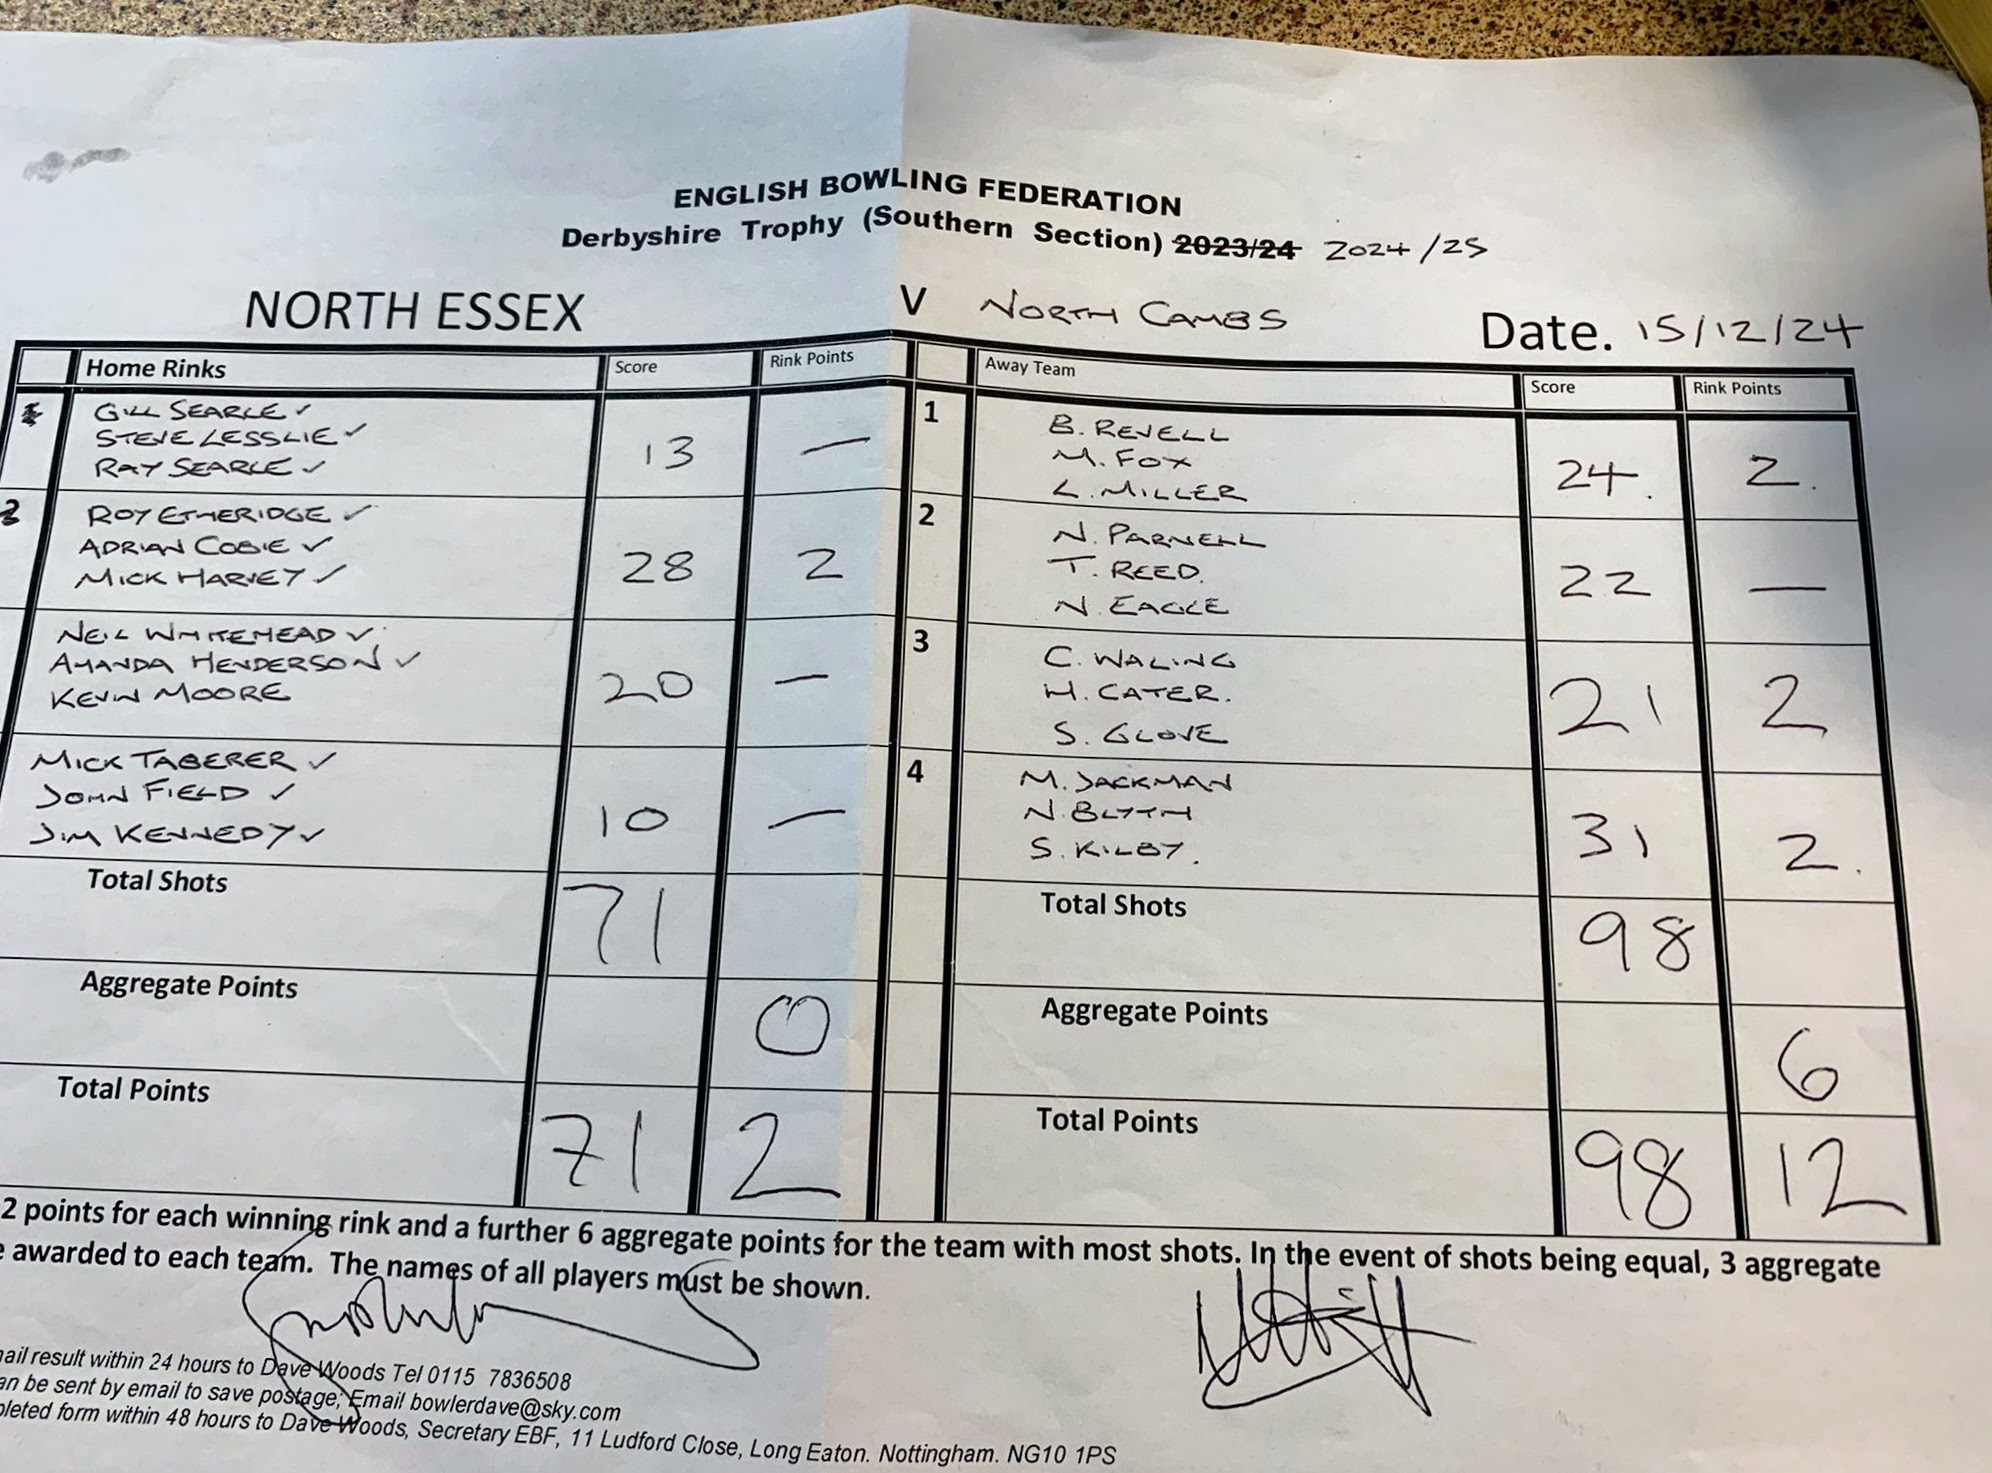 ENGLISH BOWLING FEDERATION
Derbyshire Trophy (Southern Section) 2023/24 2024/25
NORTH ESSEX V NORTH CAMBS Date. 15/12/24
Home Rinks Score Rink Points Away Team Score Rink Points
GILL SEARLE ✓
STEVE LESSLIE ✓
RAY SEARLE ✓
13 —
1
B. REVELL
M. FOX
L. MILLER
24. 2.
2
ROY ETHERIDGE ✓
ADRIAN COBIE ✓
MICK HARVEY ✓
28 2
2
N. PARNELL
T. REED.
N. EAGLE
22 —
NEIL WHITEHEAD ✓
AMANDA HENDERSON ✓
KEVIN MOORE
20 —
3
C. WALING
H. CATER.
S. GLOVE
21 2
MICK TABERER ✓
JOHN FIELD ✓
JIM KENNEDY ✓
10 —
4
M. JACKMAN
N. BLYTH
S. KILBY.
31 2.
Total Shots 71 Total Shots 98
Aggregate Points 0 Aggregate Points 6
Total Points 71 2 Total Points 98 12
2 points for each winning rink and a further 6 aggregate points for the team with most shots. In the event of shots being equal, 3 aggregate
awarded to each team. The names of all players must be shown.
ail result within 24 hours to Dave Woods Tel 0115 7836508
an be sent by email to save postage; Email bowlerdave@sky.com
pleted form within 48 hours to Dave Woods, Secretary EBF, 11 Ludford Close, Long Eaton. Nottingham. NG10 1PS